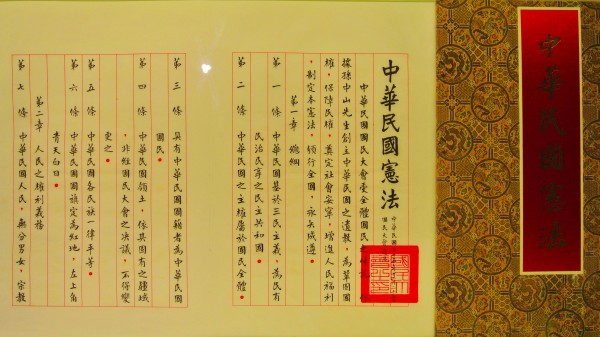 中華民國憲法
中華民國憲法
中華民國
國民大會
中華民國國民大會受全體國民
據孫中山先生創立中華民國之遺教,為鞏固國
權,保障民權,奠定社會安寧,增進人民福利
,制定本憲法,頒行全國,永矢咸遵。
第一章 總綱
第一條 中華民國基於三民主義,為民有
民治民享之民主共和國。
第二條 中華民國之主權屬於國民全體。
第三條 具有中華民國國籍者為中華民國
國民。
第四條 中華民國領土,依其固有之疆域
,非經國民大會之決議,不得變
更之。
第五條 中華民國各民族一律平等。
第六條 中華民國國旗定為紅地,左上角
青天白日。
第二章 人民之權利義務
第七條 中華民國人民,無分男女,宗教